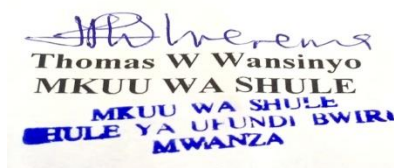 Thomas W Wansinyo
MKUU WA SHULE
MKUU WA SHULE
SHULE YA UFUNDI BWIRU
MWANZA